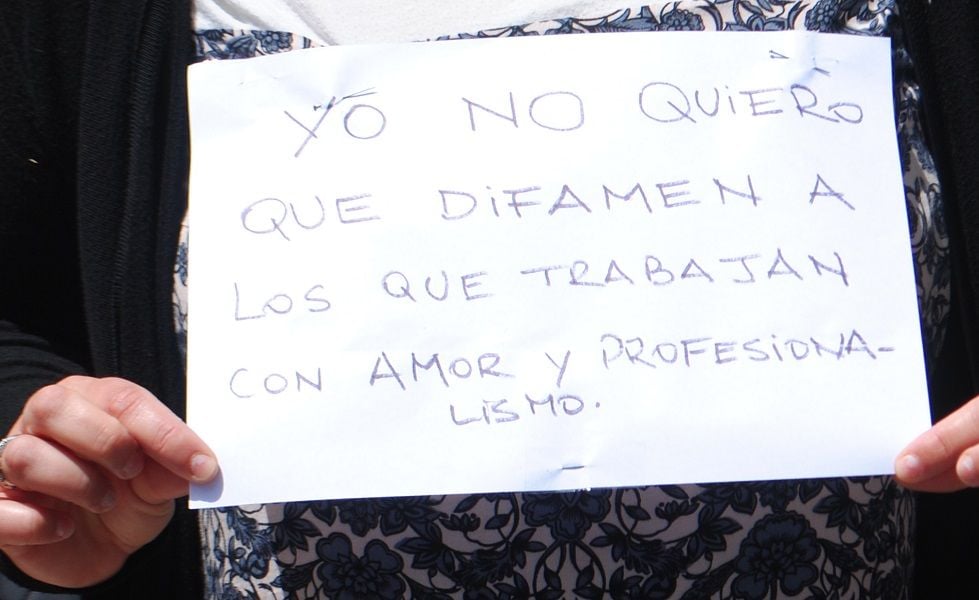 YO NO QUiERO
QUE DiFAMEN A
LOS QUE TRABAJAN
CON AMOR Y PROFESiONA-
LiSMO.